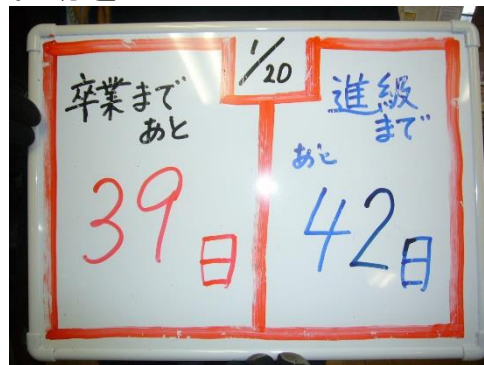 1/20
卒業まで
あと
39日
進級
まで
あと
42日